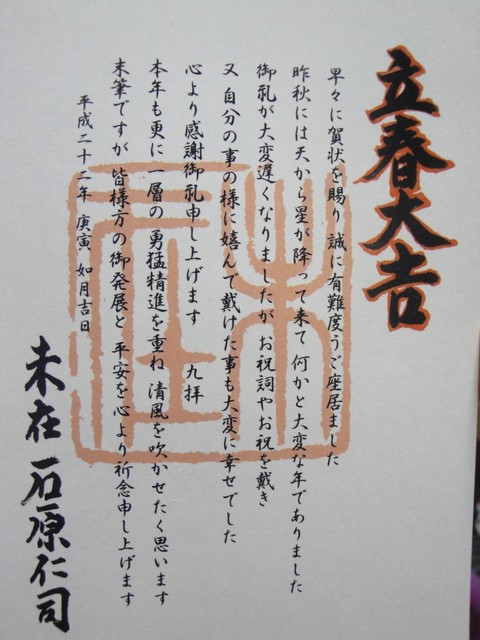 立春大吉
早々に賀状を賜り 誠に有難度うご座居ました
昨秋には天から星が降って来て 何かと大変な年でありました
御礼が大変遅くなりましたが お祝詞やお祝を戴き
又 自分の事の様に嬉んで戴けた事も大変に幸せでした
心より感謝御礼申し上げます 九拝
本年も更に一層の 勇猛精進を重ね 清風を吹かせたく思います
末筆ですが 皆様方の御発展と 平安を心より祈念申し上げます
平成二十二年 庚寅 如月吉日
未在 石原仁司
未在